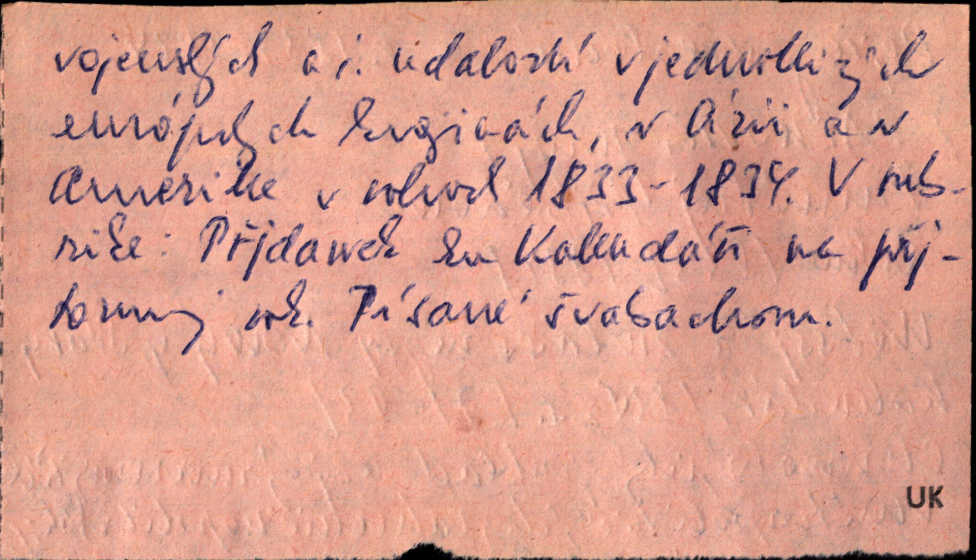 vojenských a i. událostí v jednotlivých
európskych krajinách, v Ázii a v
Amerike v rokoch 1833-1834. V rub-
rike: Přjdawek ku Kalendáři na přj-
tomný rok. Písané švabachom.
UK